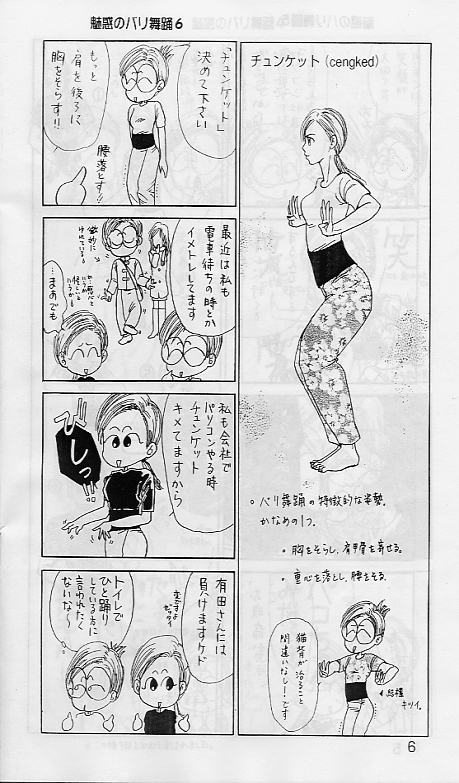 魅惑のバリ舞踊6
チュンケット (cengked)
。バリ舞踊の特徴的な姿勢。
かなめの1つ。
。胸をそらし、肩甲骨を寄せる。
。重心を落とし、腰をそる。
猫背が治ること
間違いなし!です
結構
キツイ。
「チュンケット」
決めて下さい
もっと
肩を後ろに
胸をそらす!!
腰落とす!!
最近は私も
電車待ちの時とか
イメトレしてます
微妙に
けれている。
…まあでも
私も会社で
パソコンやる時
チュンケット
キメてますから
びしっ!!
有田さんには
負けますケド
変ですよ
ゼッタイ
トイレで
ひと踊り
している方に
言われたく
ないな〜
6